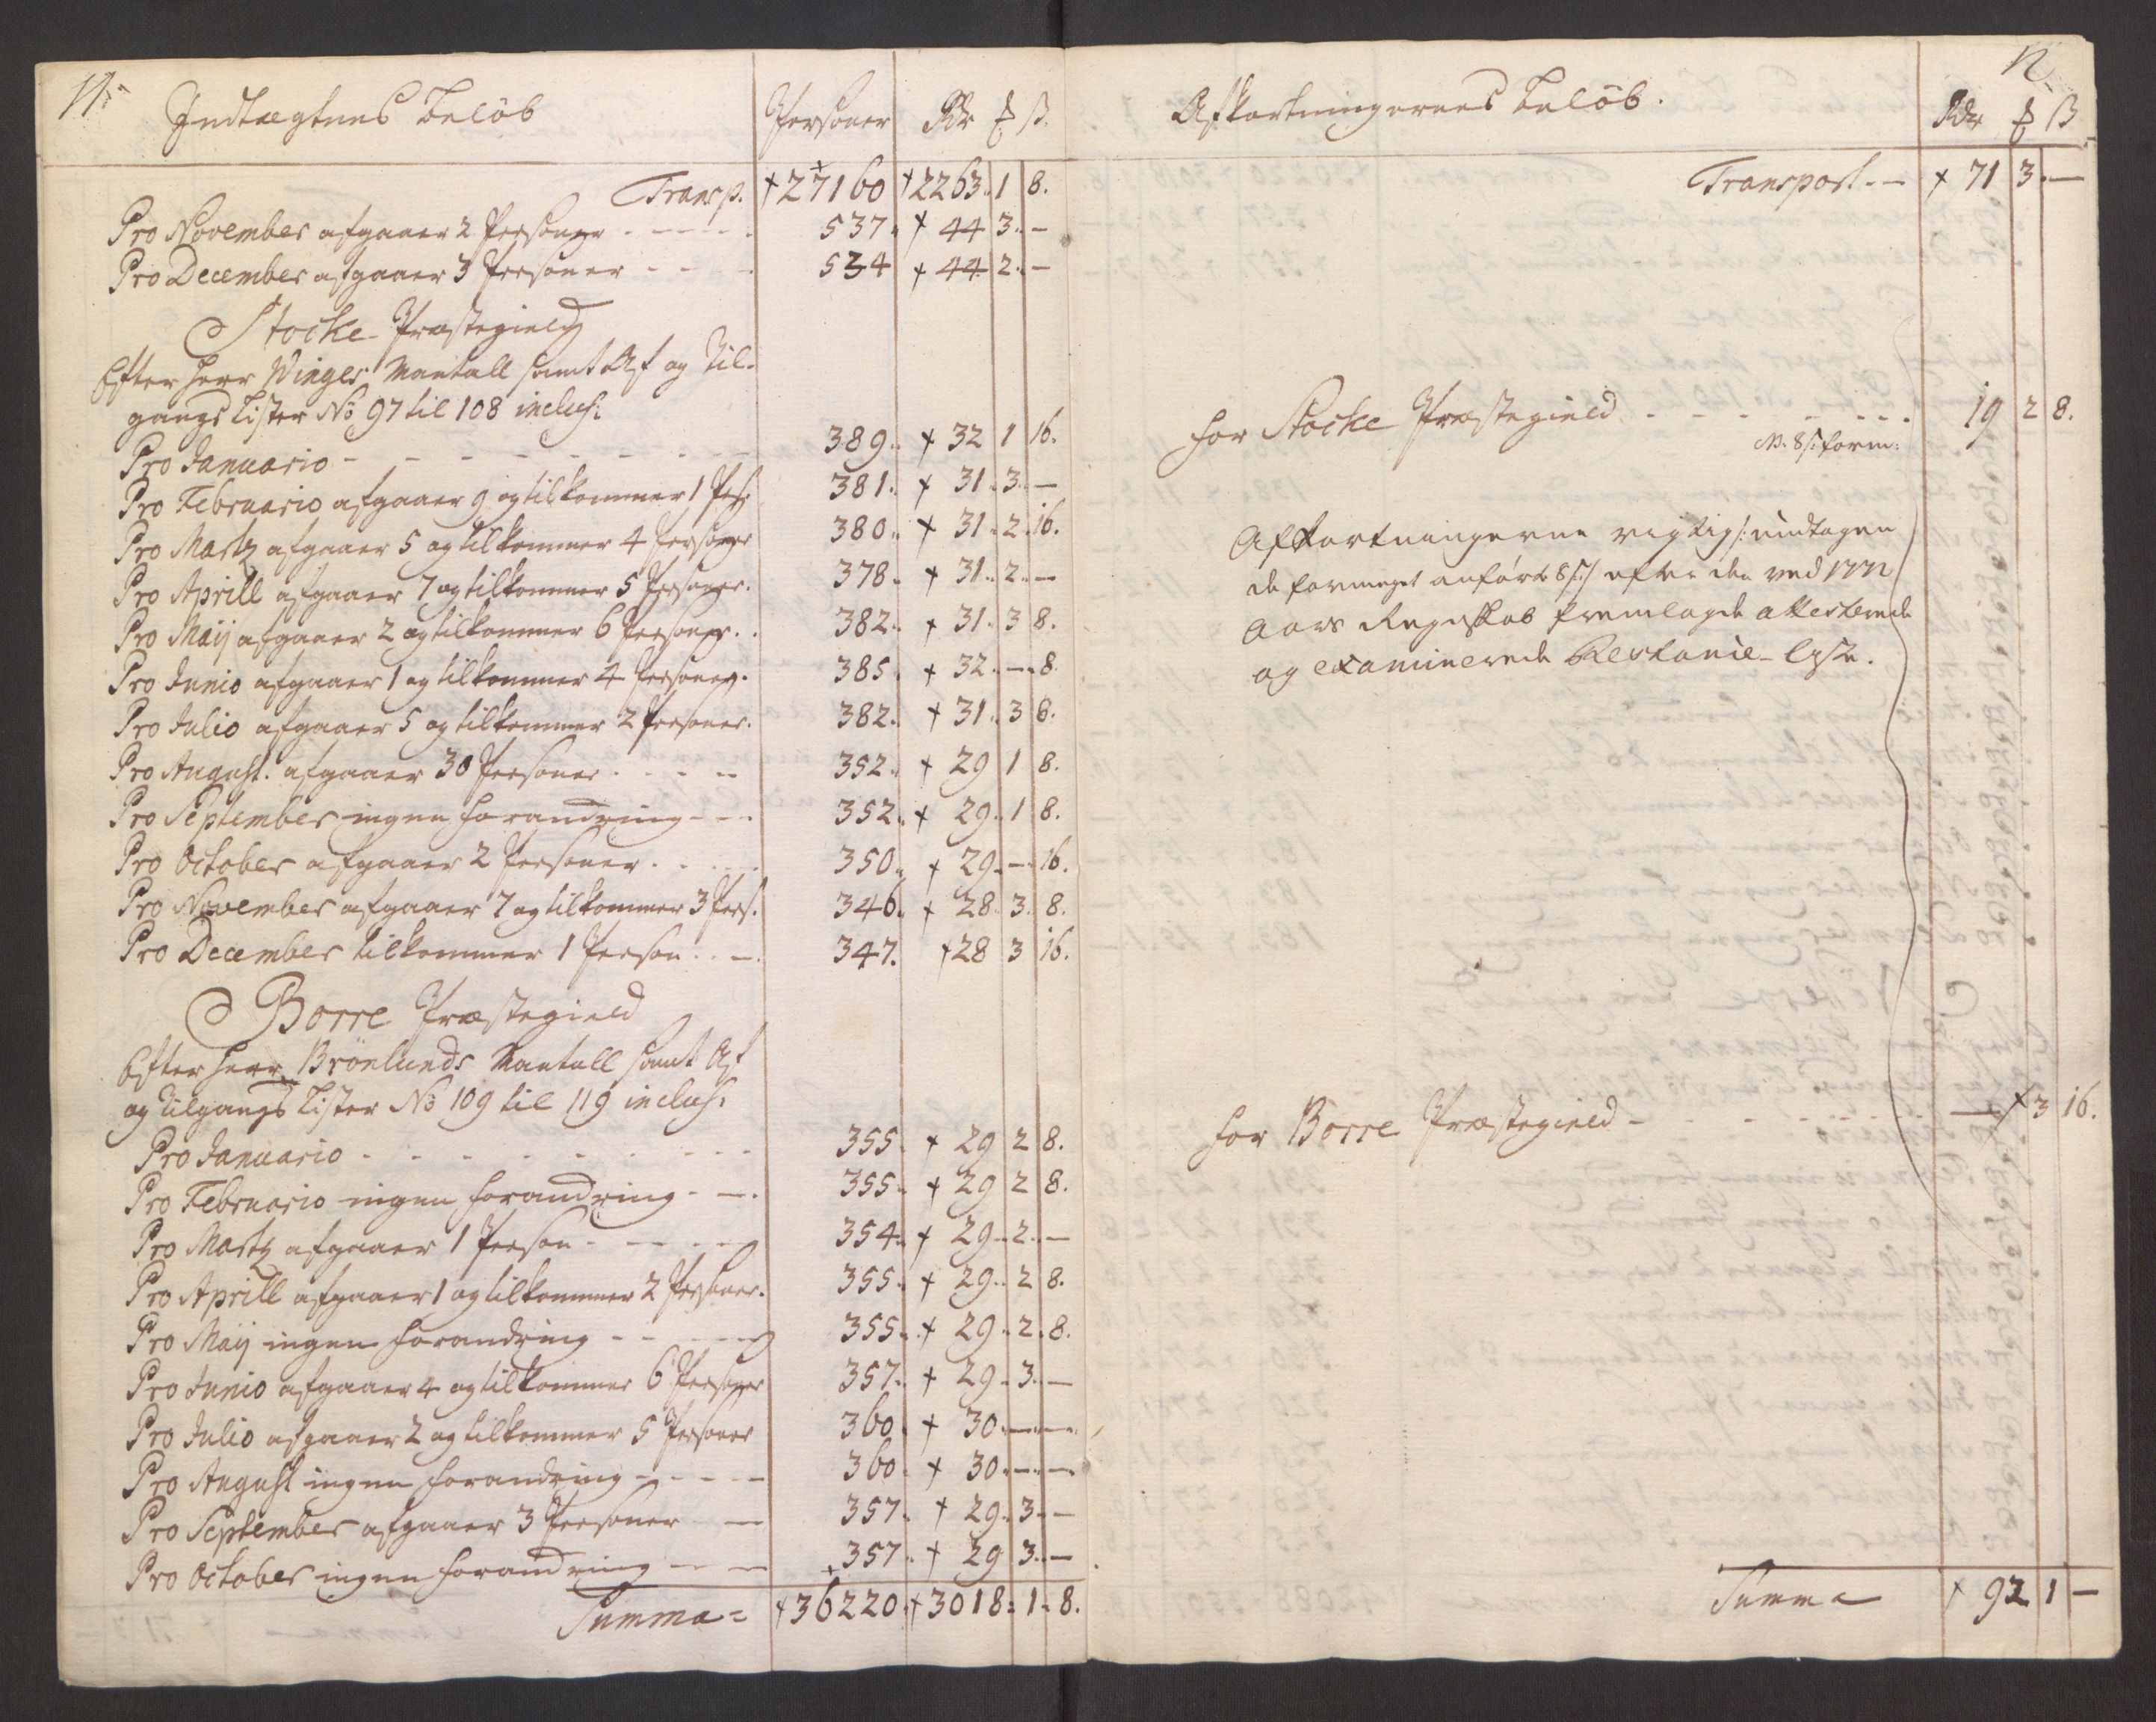 11.
Indtægtens Beløb Personer Rdr ₰ ß
Transp. 27160 2263 1 8.
Pro November afgaaer 2 Personer 537 44 3 -
Pro December afgaaer 3 Personer 534 44 2 -
Stocke Præstegield
Efter Herr Winges Mantall samt Af og Til-
gangs Lister No 97 til 108 inclus:
Pro Januario 389 32 1 16.
Pro Februario afgaaer 9 og tilkommer 1 Pers: 381 31 3 -
Pro Martz afgaaer 5 og tilkommer 4 Personer 380 31 2 16.
Pro Aprill afgaaer 7 og tilkommer 5 Personer. 378 31 2 -
Pro Maij afgaaer 2 og tilkommer 6 Personer. 382 31 3 8.
Pro Junio afgaaer 1 og tilkommer 4 Personer. 385 32 - 8
Pro Julio afgaaer 5 og tilkommer 2 Personer. 382 31 3 8.
Pro August. afgaaer 30 Personer 352 29 1 8.
Pro September ingen Forandring 352 29 1 8.
Pro October afgaaer 2 Personer 350 29 - 16.
Pro November afgaaer 7 og tilkommer 3 Pers. 346 28 3 8.
Pro December tilkommer 1 Person 347. 28 3 16.
Borre Præstegield
Efter Herr Brönlunds Mantall samt Af
og Tilgangs Lister No 109 til 119 inclus:
Pro Januario 355 29 2 8.
Pro Februario ingen Forandring 355 29 2 8.
Pro Martz afgaaer 1 Person 354 29 2 -
Pro Aprill afgaaer 1 og tilkommer 2 Personer. 355 29 2 8.
Pro Maij ingen Forandring 355 29 2 8.
Pro Junio afgaaer 4 og tilkommer 6 Personer 357 29 3 -
Pro Julio afgaaer 2 og tilkommer 5 Personer 360 30 - -
Pro August ingen Forandring 360 30 - -
Pro September afgaaer 3 Personer 357 29 3 -
Pro October ingen Forandring 357 29 3 -
Summa 36220 3018 1 8.
12
Afkortningernes Beløb. Rdr ₰ ß
Transport 71 3 -
For Stocke Præstegield 19 2 8.
8 ß: form:
Afkortningerne rigtig /: undtagen
de formeget anförte 8 ß :/ efter den ved 1772
Aars Regnskab fremlagde attesterede
og examinerede Restance-Liste.
For Borre Præstegield - 3 16.
Summa 92 1 -